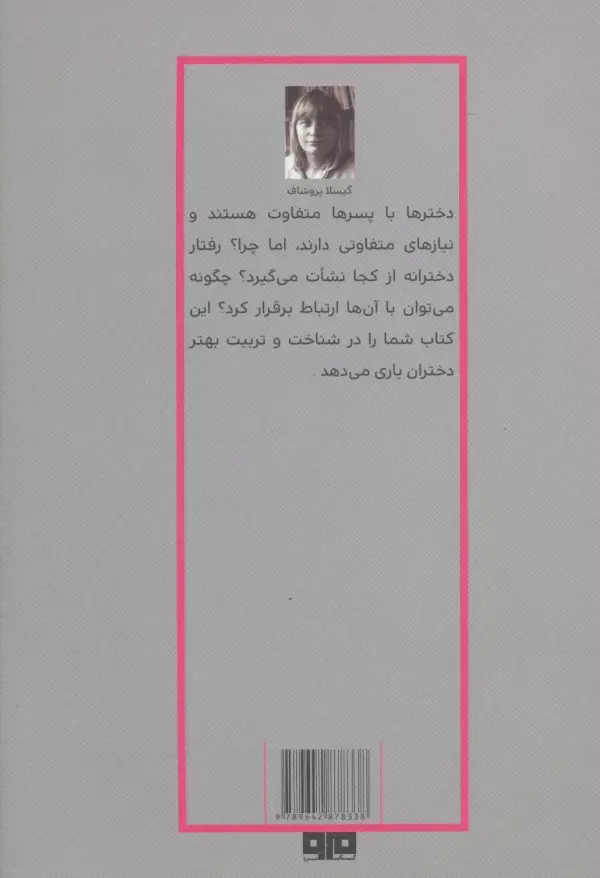 گیسلا پروشاف
دخترها با پسرها متفاوت هستند و
نیازهای متفاوتی دارند، اما چرا؟ رفتار
دخترانه از کجا نشأت می‌گیرد؟ چگونه
می‌توان با آن‌ها ارتباط برقرار کرد؟ این
کتاب شما را در شناخت و تربیت بهتر
دختران یاری می‌دهد .
9 789642 878338